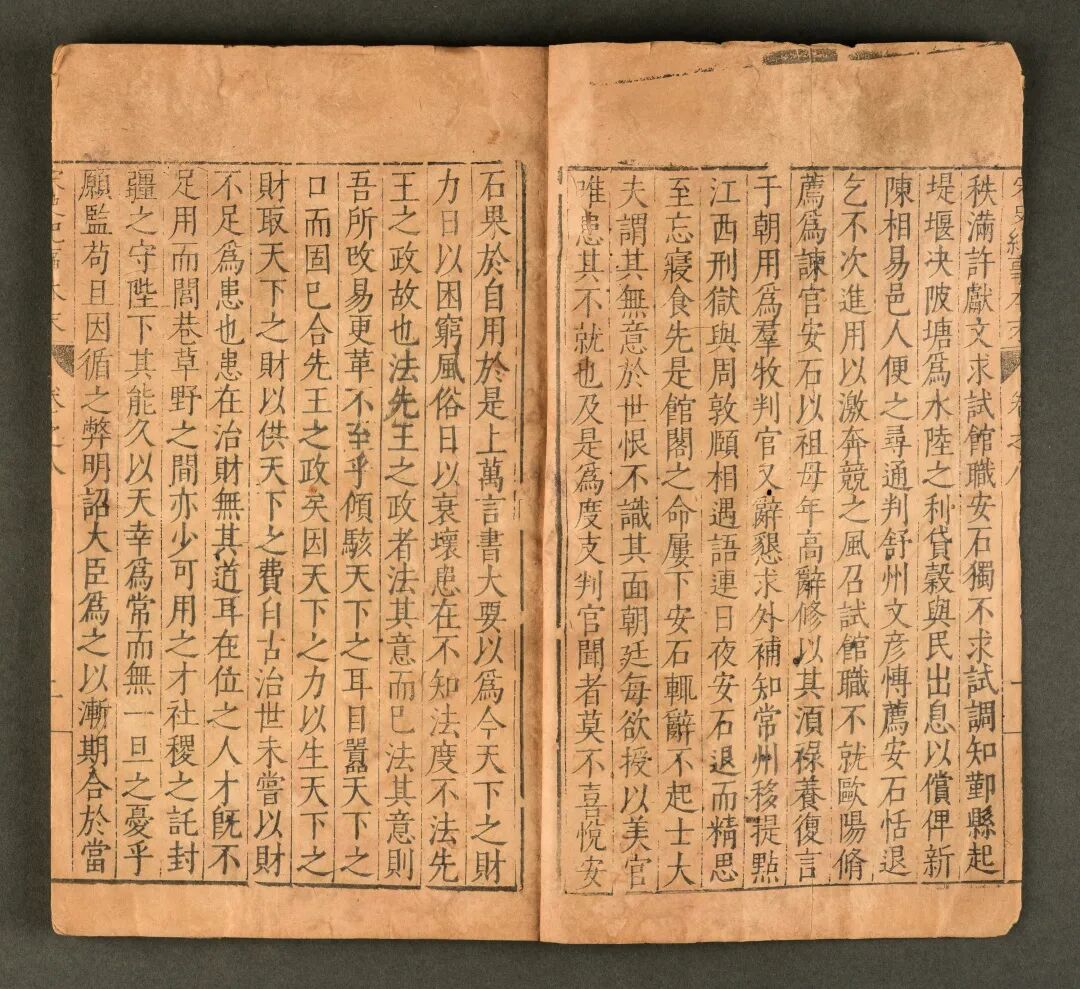 宋史紀事本末 卷之八
秩滿許獻文求試館職安石獨不求試調知鄞縣起
堤堰决陂塘爲水陸之利貸穀與民出息以償俾新
陳相易邑人便之尋通判舒州文彦愽薦安石恬退
乞不次進用以激奔競之風召試館職不就歐陽脩
薦爲諫官安石以祖母年高辭修以其湏祿養復言
于朝用爲羣牧判官又辭懇求外補知常州移提㸃
江西刑獄與周敦頤相遇語連日夜安石退而精思
至忘寢食先是館閣之命屢下安石輒辭不起士大
夫謂其無意於世恨不識其面朝廷每欲授以美官
唯患其不就也及是爲度支判官聞者莫不喜悅安
石果於自用於是上萬言書大要以爲今天下之財
力日以困窮風俗日以衰壞患在不知法度不法先
王之政故也法先王之政者法其意而已法其意則
吾所改易更革不至乎傾駭天下之耳目囂天下之
口而固已合先王之政矣因天下之力以生天下之
財取天下之財以供天下之費自古治世未嘗以財
不足爲患也患在治財無其道耳在位之人才旣不
足用而閭巷草野之間亦少可用之才社稷之託封
疆之守陛下其能久以天幸爲常而無一旦之憂乎
願監苟且因循之弊明詔大臣爲之以漸期合於當
卷之八 二